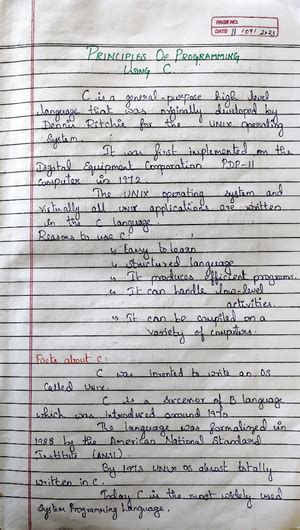 PAGE NO.
DATE 11/09/2023
PRINCIPLES OF PROGRAMMING
USING C.
C is a general-purpose high level
language that was originally developed by
Dennis Ritchie for the UNIX operating
System.
It was first implemented on the
Digital Equipment Corporation PDP-11
Computer in 1972
The UNIX operating system and
virtually all unix applications are written
in the C language.
Reasons to use C:
↳ Easy to learn
↳ structured language
↳ It produces efficient programs.
↳ It can handle low-level
activities.
↳ It can be compiled on a
variety of computers.
Facts about C:
C was invented to write an OS
Called Unix.
C is a successor of B language
which was introduced around 1970
The language was formalized in
1988 by the American National Standard
Institute (ANSI).
By 1973 UNIX OS almost totally
written in C.
Today C is the most widely used
System Programming Language.